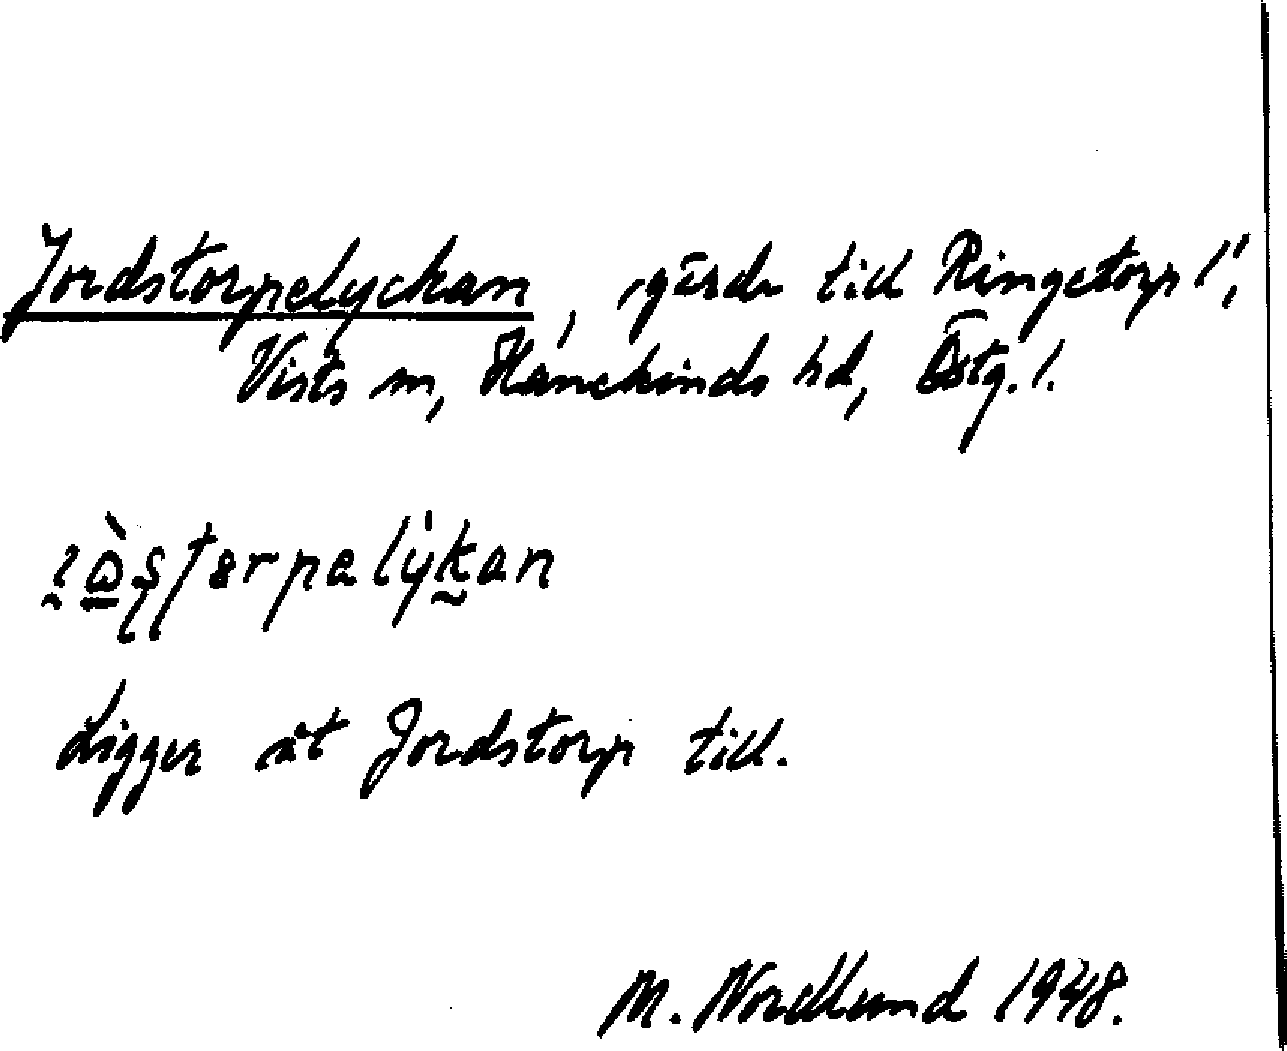 Jordstorpelyckan, gärde till Ringetorp 1¹,
Vists sn, Hanekinds hd, Östg. l.
Ligger åt Jordstorp till.
M. Nordlund 1948.